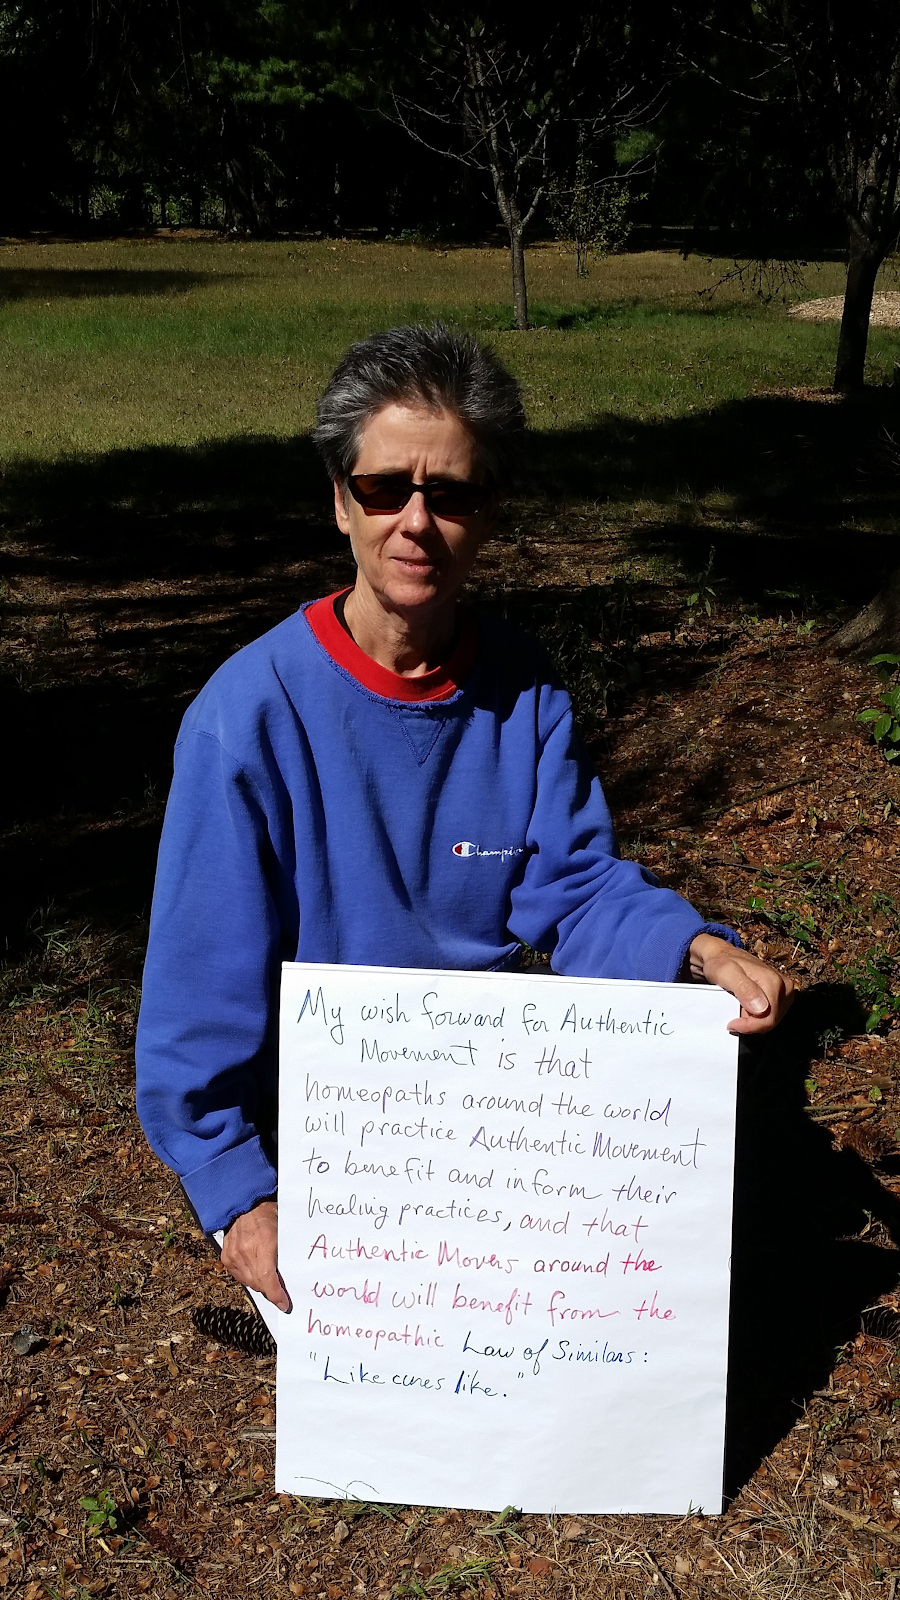 Champion
My wish forward for Authentic
Movement is that
homeopaths around the world
will practice Authentic Movement
to benefit and inform their
healing practices, and that
Authentic Movers around the
world will benefit from the
homeopathic Law of Similars:
"Like cures like."